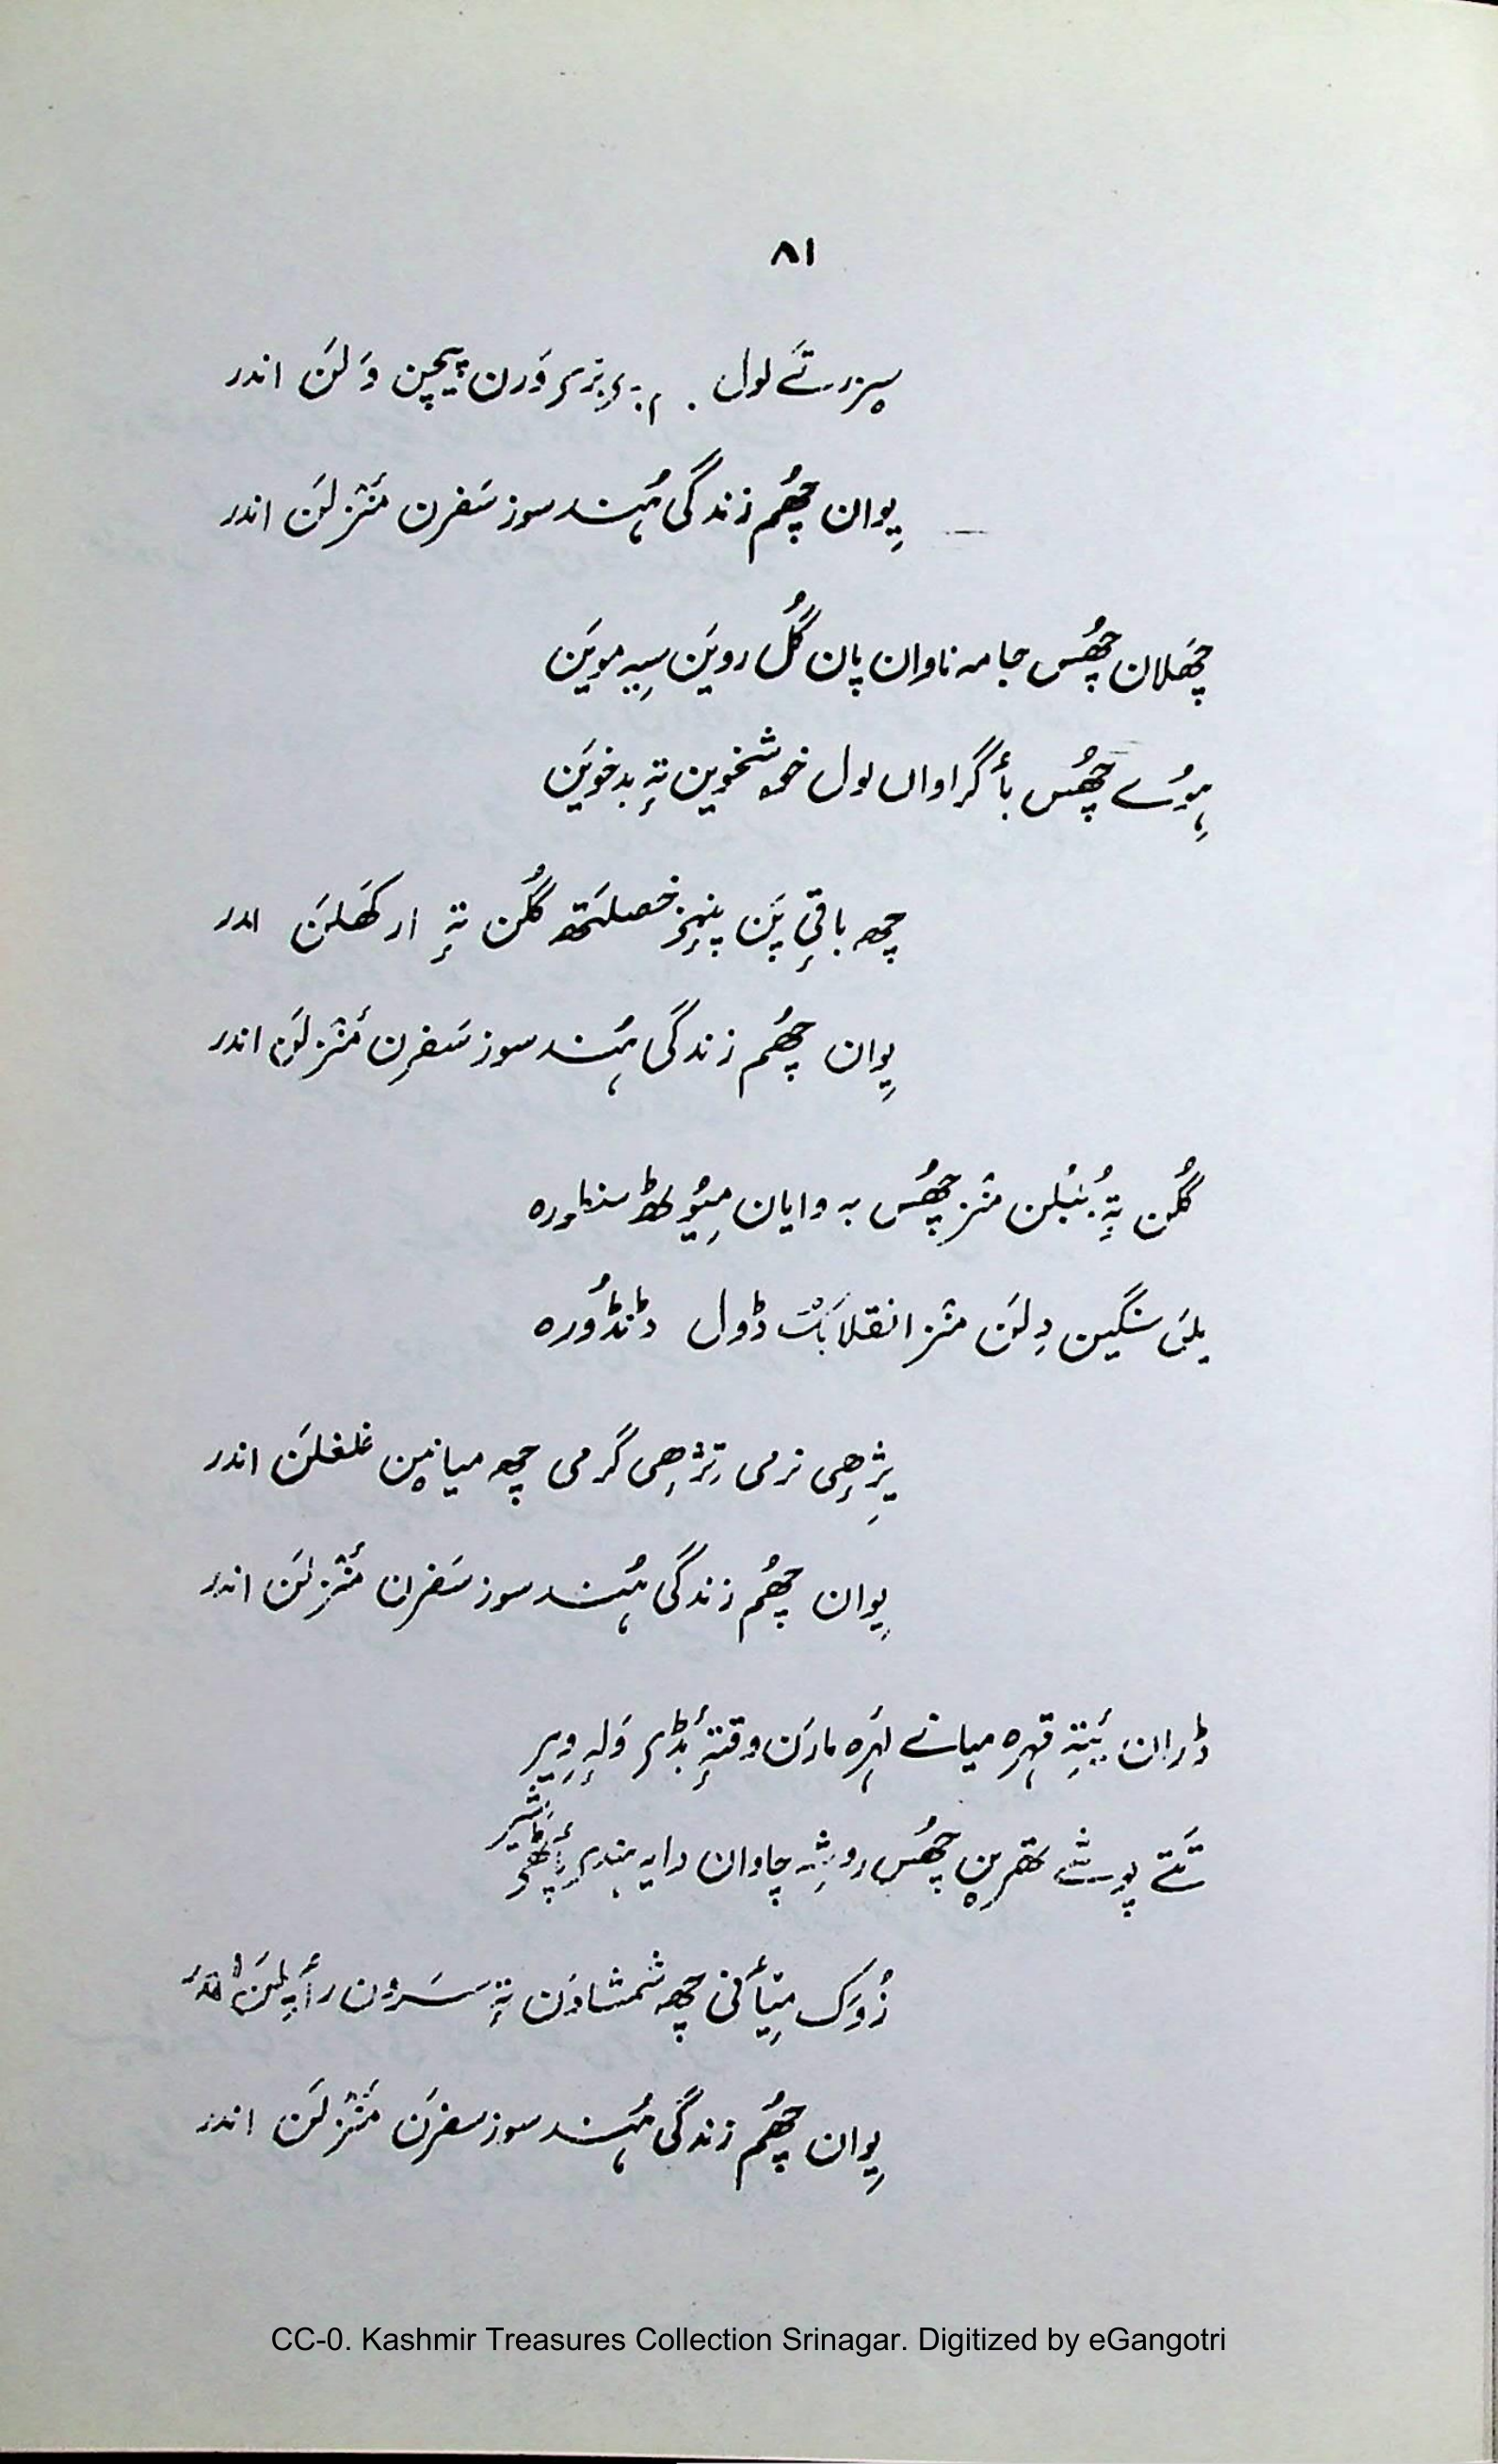 ۸۱
لول وَرن پیچن وَلَن اندر
یِوان چھُم زندگی ہُند سوز سَفرن مَنٛزلَن اندر
چھَلان چھُس جامہ ناوان پان گُل رویَن سِیہ مویَن
ہِوُے چھُس بأگراوان لول خوشخوین تہٕ بدخویَن
چھ باقٕی پَنٕنہِ خصلتھ گُلن تہٕ ارکھَلَن اندر
یِوان چھُم زندگی ہُند سوز سَفرن مَنٛزلَن اندر
گُلن تہٕ بُنبُلن منٛز چھُس بہ وایان مِیوٗٹھ سنطورہ
یِلَن سنگین دِلَن منٛز انقلابُک ڈول ڈنڈوُرہ
یِژھٕی نرمی تِژھٕی گرمی چھ میانین غلغلَن اندر
یِوان چھُم زندگی ہُند سوز سَفرن مَنٛزلَن اندر
ڈران بَتہٕ قہرہ میانے لہَرہ مارَن وقتہٕ بٔڈر وَلہٕ وِیر
تَتے پوشے تھرین چھُس روشہِ چاوان دایہ ہنٛدر
زُوَک مِتأنی چھ شمشادَن تہٕ سَروَن اندر
یِوان چھُم زندگی ہُند سوز سفرَن مَنٛزلَن اندر
CC-0. Kashmir Treasures Collection Srinagar. Digitized by eGangotri